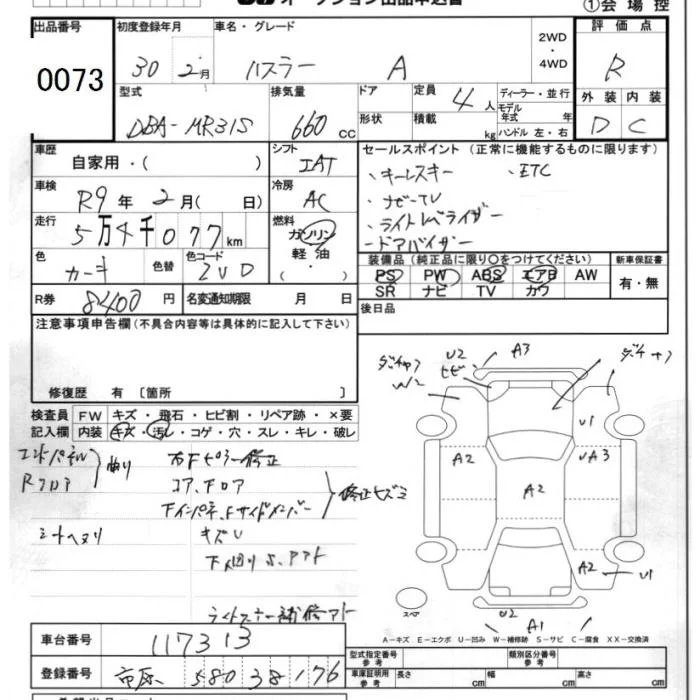 オークション出品申込書 ①会場控
出品番号 初度登録年月 車名・グレード 2WD・4WD 評価点
0073 30年 2月 ハスラー A R
型式 排気量 ドア 定員 ディーラー・並行 外装 内装
DBA-MR31S 660 cc 4人 モデル年式 年 D C
形状 積載 kg ハンドル 左・右
車歴 自家用・( ) シフト IAT セールスポイント (正常に機能するものに限ります)
車検 R9年 2月( 日) 冷房 AC ・キーレスキー ・ETC
・ナビ-TV
走行 5万4千077km 燃料 ガソリン 軽油 ( ・ ) ・ライトレベライザー
・ドアバイザー
色 カーキ 色替 色コード ZVD 装備品 (純正品に限り〇をつけてください) 新車保証書
PS PW ABS エアB AW 有・無
SR ナビ TV カワ
R券 8400円 名変通知期限 月 日 後日品
注意事項申告欄(不具合内容等は具体的に記入して下さい)
修復歴 有 〔箇所 〕
検査員 FW キズ・飛石・ヒビ割・リペア跡・×要
記入欄 内装 キズ・汚レ・コゲ・穴・スレ・キレ・破レ
エンドパネル 右Fピラー修正
Rフロア 曲り コア、Fロア 修正ヒズミ
Fインパネ、Fサイドメンバー
シートヘタリ キズU
下廻りS、アト
ライトステー補修アト
U2 A3
ヒビ
W2
U1
A2 A2 UA3
A2 U1
スペア U2 A1
A－キズ E－エクボ U－凹み W－補修跡 S－サビ C－腐食 XX－交換済
車台番号 117313 型式指定番号 参考 類別区分番号 参考
登録番号 市原 580 38176 車庫証明用 参考 長さ cm 幅 cm 高さ cm